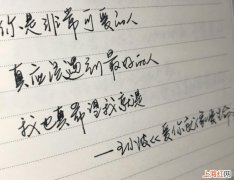 你是非常可爱的人
真应该遇到最好的人
我也真希望我就是
——王小波《爱你就像爱生命
上海红网